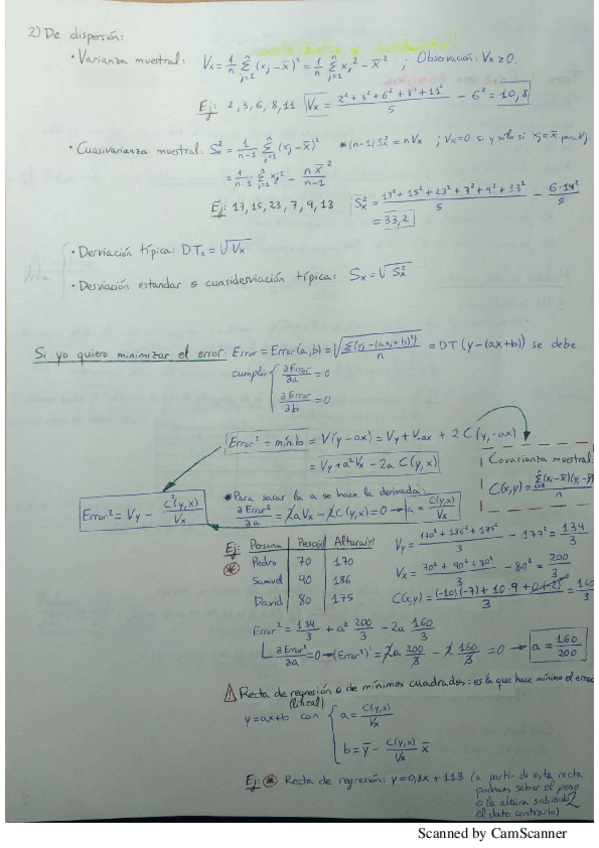 2) De dispersión:
• Varianza muestral: Vx = 1/n Σ(j=1..n) (xj - x̄)² = 1/n Σ(j=1..n) xj² - x̄² ; Observación: Vx ≥ 0.
Ej: 2, 3, 6, 8, 11 Vx = (2² + 3² + 6² + 8² + 11²)/5 - 6² = 10,8
• Cuasivarianza muestral: Sx² = 1/(n-1) Σ(j=1..n) (xj - x̄)² *(n-1) Sx² = nVx ; Vx = 0 si y sólo si xj = x̄ para ∀j.
= 1/(n-1) Σ(j=1..n) xj² - n x̄²/(n-1)
Ej: 17, 15, 23, 7, 9, 13 Sx² = (17² + 15² + 23² + 7² + 9² + 13²)/5 - 6·14²/5
= 33,2
• Derviación típica: DTx = √Vx
• Desviación estandar o cuasiderviación típica: Sx = √Sx²
Si yo quiero minimizar el error: Error = Error(a,b) = √(Σ(yj - (axj + b)²)/n) = DT(y - (ax+b)) se debe
cumplir { ∂Error/∂a = 0
∂Error/∂b = 0
Error² = mín.b = V(y - ax) = Vy + V-ax + 2 C(y, -ax)
= Vy + a²Vx - 2a C(y,x)
Covarianza muestral:
C(x,y) = Σ(xi - x̄)(yi - y
n
*Para sacar la a se hace la derivada:
∂Error²/∂a = 2aVx - 2C(y,x) = 0 → a = C(y,x)/Vx
Error² = Vy - C²(y,x)/Vx
Ej: Persona Peso(x) Altura(y)
Pedro 70 170
Samuel 90 186
David 80 175
Vy = (170² + 186² + 175²)/3 - 177² = 134/3
Vx = (70² + 90² + 80²)/3 - 80² = 200/3
C(x,y) = ((-10)(-7) + 10·9 + 0·(-2))/3 = 160
Error² = 134/3 + a² 200/3 - 2a 160/3
∂Error²/∂a = 0 → (Error²)' = 2a 200/3 - 2 160/3 = 0 → a = 160/200
Recta de regresión o de mínimos cuadrados: es la que hace mínimo el error
(lineal)
y = ax + b con { a = C(y,x)/Vx
b = ȳ - C(y,x)/Vx x̄
Ej: * Recta de regresión: y = 0,8x + 113 (a partir de esta recta
podemos saber el peso
o la altura sabiendo
el dato contrario)
2
Scanned by CamScanner